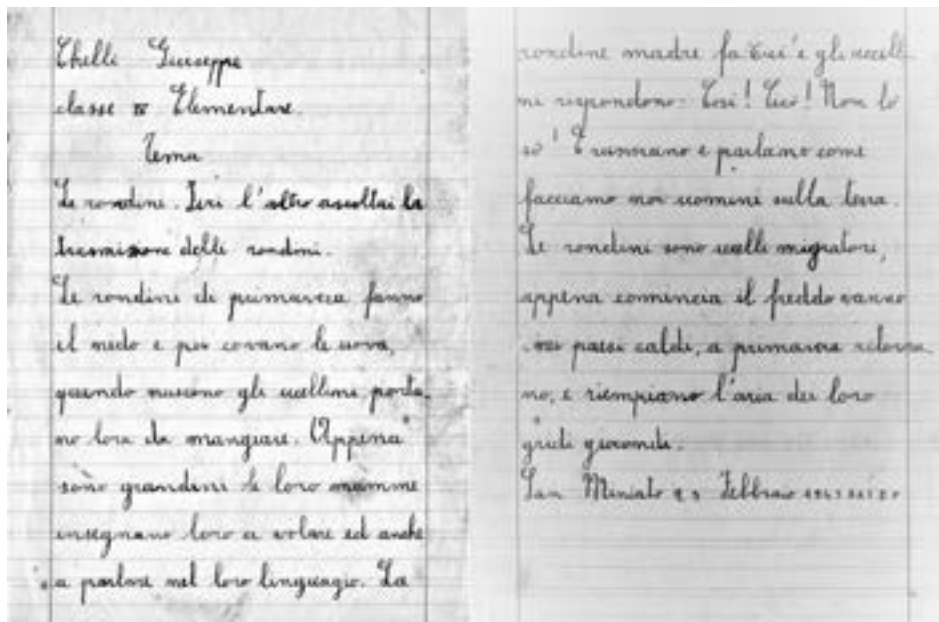 Chelli Giuseppe
classe IV Elementare.
Tema
Le rondini. Ieri l'altro ascoltai la
trasmisione delle rondini.
Le rondini di primavera fanno
il nido e poi covano le uova,
quando nascono gli ucellini porta
no loro da mangiare. Appena
sono grandini le loro mamme
insegnano loro a volare ed anche
a parlare nel loro linguagio. La
rondine madre fa e gli uccelli
ni rispondono - ! ! Non lo
so! E parlano come
facciamo noi uomini sulla terra.
Le rondini sono ucelli migratori,
appena comincia il freddo vanno
nei paesi caldi, a primavera ritorna
no, e riempiono l'aria dei loro
gridi giocondi.
San Miniato Febbraio